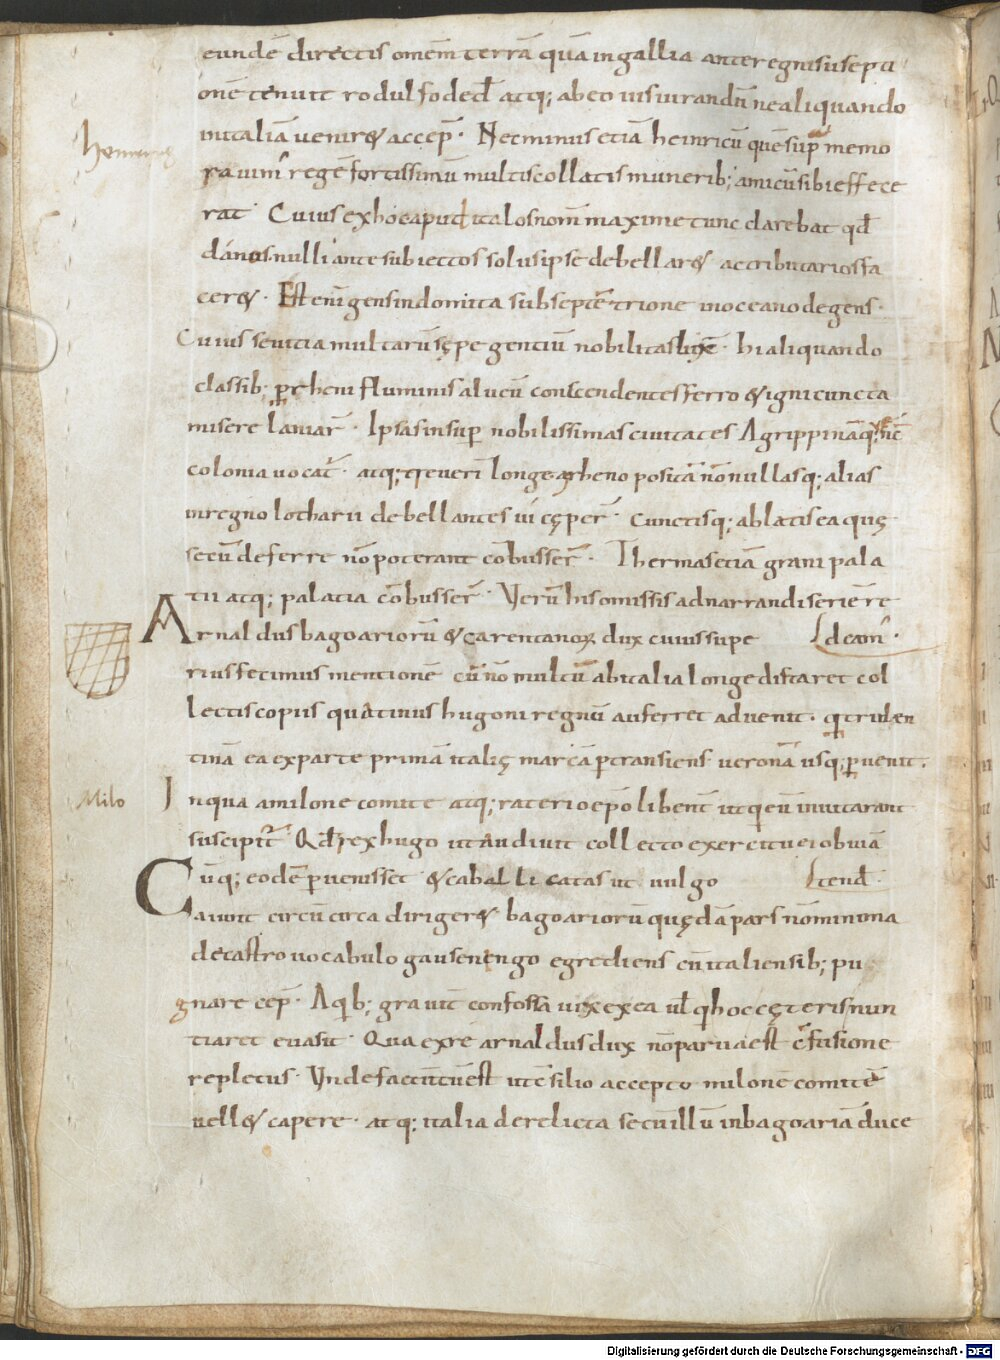 eundē directis omēm terrā quā in gallia ante regni suscepti
onē tenuit rodulfo ded̄ atq; ab eo iusiurandū ne aliquando
in italiā venir& accep̄. Nec minus etiā heinricū quē sup̄ memo
ravim᾽ regē fortissimū multis collatis munerib; amicū sibi effece
rat. Cuius ex hoc apud italos nom̄ maxime tunc clarebat qd̄
danos nulli ante subiectos solus ipse debellar& ac tributarios fa
cer&. Est eni gens indomita sub septētrione in oceano degens.
Cuius sevitia multarū sępe gentiū nobilitas lux&. hi aliquando
classib; p rheni fluminis alveū conscendentes ferro & igni cuncta
misere laniar̄. Ipsas insup̄ nobilissimas civitates Agrippinā q; nc̄
colonia vocat̄. atq; treverī longe a rheno positā nonnullasq; alias
in regno lotharii debellantes vi cęper̄. Cunctisq; ablatis ea quę
secū deferre nō poterant cōbusser̄. Thermas etiā grani pala
tii atq; palatia cōbusser̄. Verū his omissis ad narrandi seriē re
Arnaldus bagoariorū & carentanoꝝ dux cuius supe deam᾽.
rius fecimus mentionē cū nō multū ab italia longe distaret col
lectis copiis quatinus hugoni regnū auferret advenit. q tridēn
tinā ea ex parte primā italię marcā ptransiens veronā usq; pvenit.
In qua a milone comite atq; raterio ep̄o libent̄ ut q eū invitarant
suscipit᾽. Qd̄ rex hugo ut audivit collecto exercitu ei obviā
Cūq; eodē pvenisset & caballicatas ut vulgo tend̄.
aiunt circūcirca diriger& bagoariorū quędā pars nō minima
de castro vocabulo gausenīngo egrediens cū italiensib; pu
gnare cep̄. A qb; gravit̄ confossa vix ex ea vl̄ q hoc cęteris nun
tiaret evasit. Qua ex re arnaldus dux nō parva est cfusione
repletus. Unde factū est ut csilio accepto milonē comitē
vell& capere. atq; italia derelicta secū illū in bagoariā duce
Milo